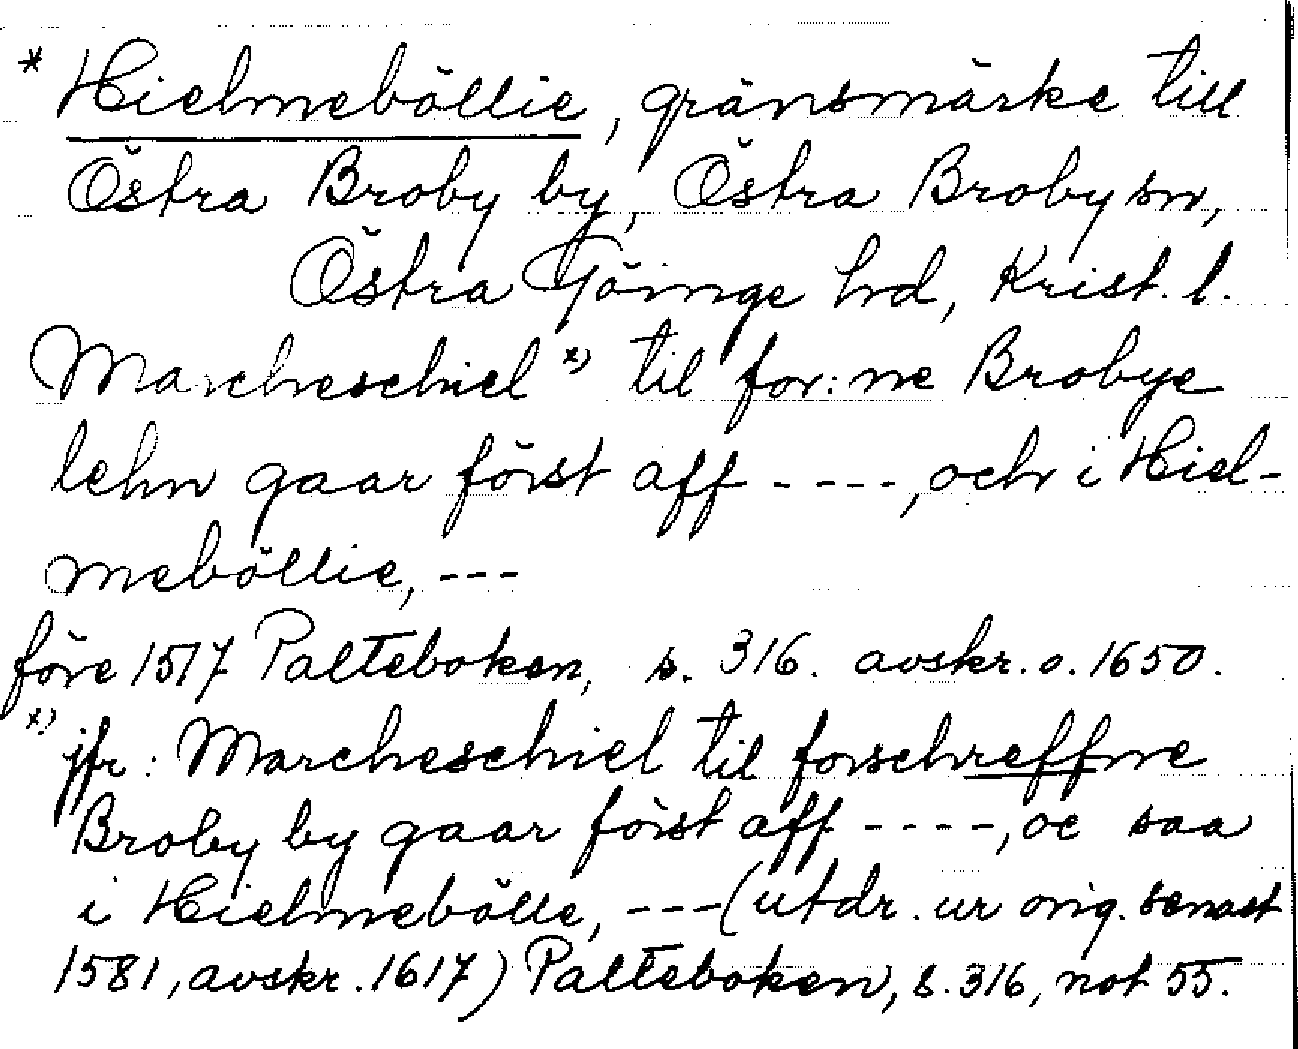 * Hielmeböllie, gränsmärke till
Östra Broby by, Östra Broby sn,
Östra Göinge hd, Krist. l.
Marcheschiel *) til for:ne Brobye
lehn gaar först aff ----, och i Hiel-
meböllie, ---
före 1517 Palteboken, s. 316. avskr. o. 1650.
*) jfr: Marcheschiel til forschreffne
Broby by gaar först aff ----, oc saa
i Hielmebölle, --- (utdr. ur orig. senast
1581, avskr. 1617) Palteboken, s. 316, not 55.